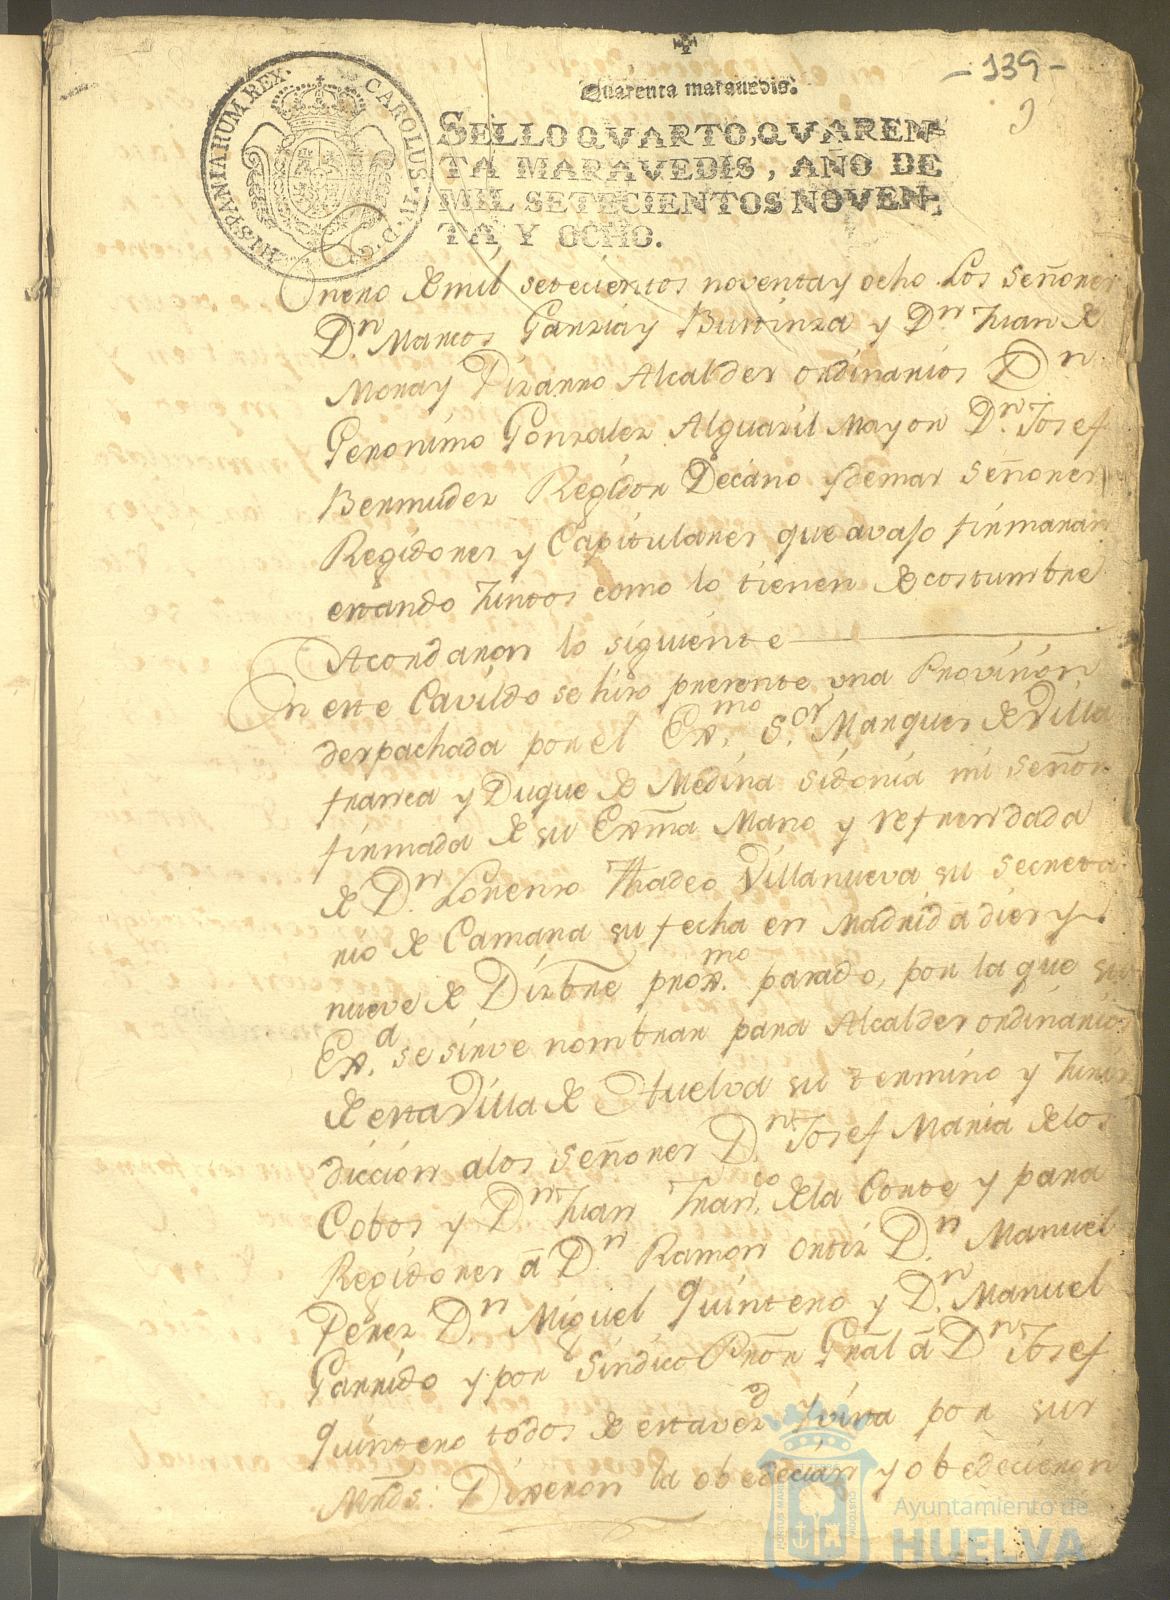 -139-
9
Quarenta maravedis.
SELLO QVARTO, QVAREN-
TA MARAVEDIS, AÑO DE
MIL SETECIENTOS NOVEN-
TA Y OCHO.
HISPANIARUM REX. CAROLUS IV D. G.
Enero de mil setecientos noventa y ocho Los Señores
Dn. Marcos Garzia y Burtinza y Dn. Juan de
Mora y Pizarro Alcaldes ordinarios Dn.
Geronimo Gonzalez Alguazil Mayor Dn. Josef
Bermudez Regidor Decano y demas Señores
Regidores y Capitulares que avajo firmaran
estando Juntos como lo tienen de costumbre
Acordaron lo siguiente
En este Cavildo se hizo presente una Provision
despachada por el Exmo. Sor. Marques de Villa
franca y Duque de Medina sidonia mi señor
firmada de su Exma Mano y refrendada
de Dn. Lorenzo Thadeo Villanueva su secreta
rio de Camara su fecha en Madrid a diez y
nueve de Dizbre proxmo. pasado, por la que su
Exa. se sirve nombrar para Alcaldes ordinarios
de esta Villa de Huelva su termino y Juris
diccion a los Señores Dn. Josef Maria de los
Cobos y Dn. Juan Franco. de la Corte y para
Regidores a Dn. Ramon Ortiz Dn. Manuel
Perez Dn. Miguel Quintero y Dn. Manuel
Garrido y por Sindico Pror Gral a Dn. Josef
Quintero todos de esta vezd. Y vista por sus
Mrds: Dixeron la obedecian y obedecieron
Ayuntamiento de
HUELVA